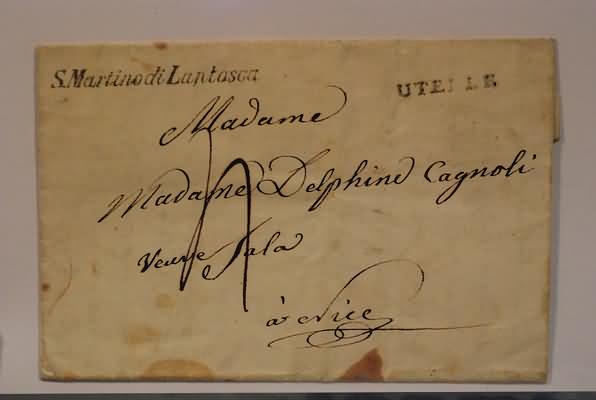 S. Martino di Lantosca
UTELLE
Madame
Madame Delphine Cagnoli
Veuve Sala
à Nice